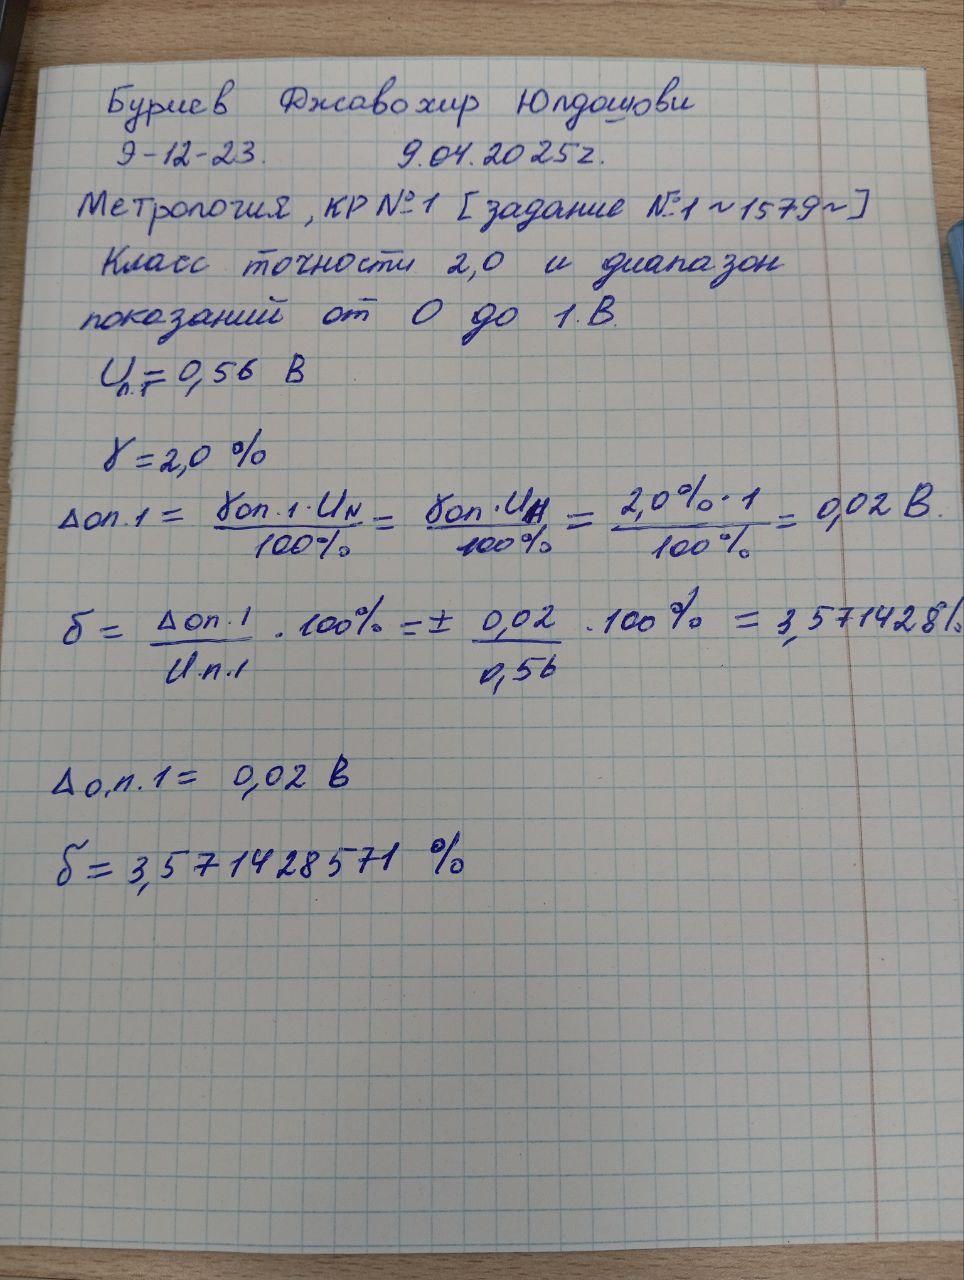 Буриев Джавохир Юлдошови
Э-12-23. 9.04.2025г.
Метрология, КР №1 [задание №1 ~1579~]
Класс точности 2,0 и диапазон
показаний от 0 до 1.В.
Uп.1 = 0,56 В
γ = 2,0 %
Δоп.1 = γоп.1·UN / 100% = γоп·UН / 100% = 2,0%·1 / 100% = 0,02 В.
δ = Δоп.1 / U.п.1 · 100% = ± 0,02 / 0,56 · 100% = 3,571428%
Δо,п.1 = 0,02 В
δ = 3,571428571 %